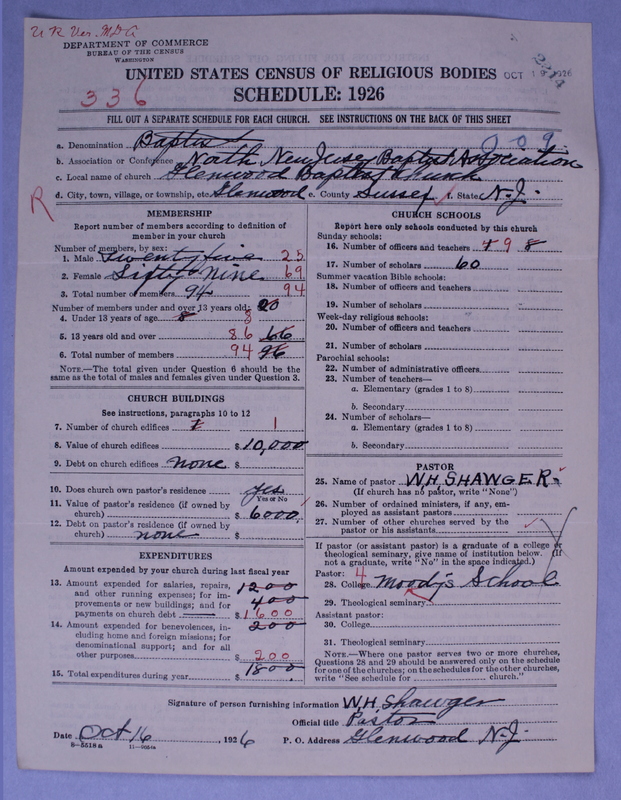 U R Ver. M.D.A
DEPARTMENT OF COMMERCE
BUREAU OF THE CENSUS
WASHINGTON
UNITED STATES CENSUS OF RELIGIOUS BODIES
OCT 19 1926
336
SCHEDULE: 1926
FILL OUT A SEPARATE SCHEDULE FOR EACH CHURCH. SEE INSTRUCTIONS ON THE BACK OF THIS SHEET
a. Denomination Baptist 009
b. Association or Conference North New Jersey Baptist Association
c. Local name of church Glenwood Baptist Church
R d. City, town, village, or township, etc. Glenwood e. County Sussex f. State N.J.
MEMBERSHIP
Report number of members according to definition of member in your church
Number of members, by sex:
1. Male Twenty five 25
2. Female Sixty Nine 69
3. Total number of members 94 94
Number of members under and over 13 years old: 20
4. Under 13 years of age 8 8
5. 13 years old and over 86 66
6. Total number of members 94 96
NOTE.—The total given under Question 6 should be the same as the total of males and females given under Question 3.
CHURCH BUILDINGS
See instructions, paragraphs 10 to 12
7. Number of church edifices 1 1
8. Value of church edifices $ 10,000
9. Debt on church edifices none $
10. Does church own pastor's residence yes
Yes or No
11. Value of pastor's residence (if owned by church) $ 6000
12. Debt on pastor's residence (if owned by church) none $
EXPENDITURES
Amount expended by church during last fiscal year
13. Amount expended for salaries, repairs, 1200
and other running expenses; for im-
provements or new buildings; and for 400
payments on church debt $ 1600
14. Amount expended for benevolences, in- 200
cluding home and foreign missions; for
denominational support; and for all
other purposes $ 200
15. Total expenditures during year $ 1800
CHURCH SCHOOLS
Report here only schools conducted by this church
Sunday schools:
16. Number of officers and teachers 9 8
17. Number of scholars 60
Summer vacation Bible schools:
18. Number of officers and teachers
19. Number of scholars
Week-day religious schools:
20. Number of officers and teachers
21. Number of scholars
Parochial schools:
22. Number of administrative officers
23. Number of teachers—
a. Elementary (grades 1 to 8)
b. Secondary
24. Number of scholars—
a. Elementary (grades 1 to 8)
b. Secondary
PASTOR
25. Name of pastor W.H. SHAWGER
(If church has no pastor, write "None")
26. Number of ordained ministers, if any, em-
ployed as assistant pastors
27. Number of other churches served by the
pastor or his assistants
If pastor (or assistant pastor) is a graduate of a college or
theological seminary, give name of institution below. (If
not a graduate, write "No" in the space indicated.)
Pastor: 4
28. College Moody's School
29. Theological seminary
Assistant pastor:
30. College
31. Theological seminary
NOTE.—Where one pastor serves two or more churches,
Questions 28 and 29 should be answered only on the schedule
for one of the churches; on the schedules for the other churches,
write "See schedule for church."
Signature of person furnishing information W.H. Shawger
Official title Pastor
Date Oct 16, 1926 P. O. Address Glenwood N.J.
8—5518a 11—9054a